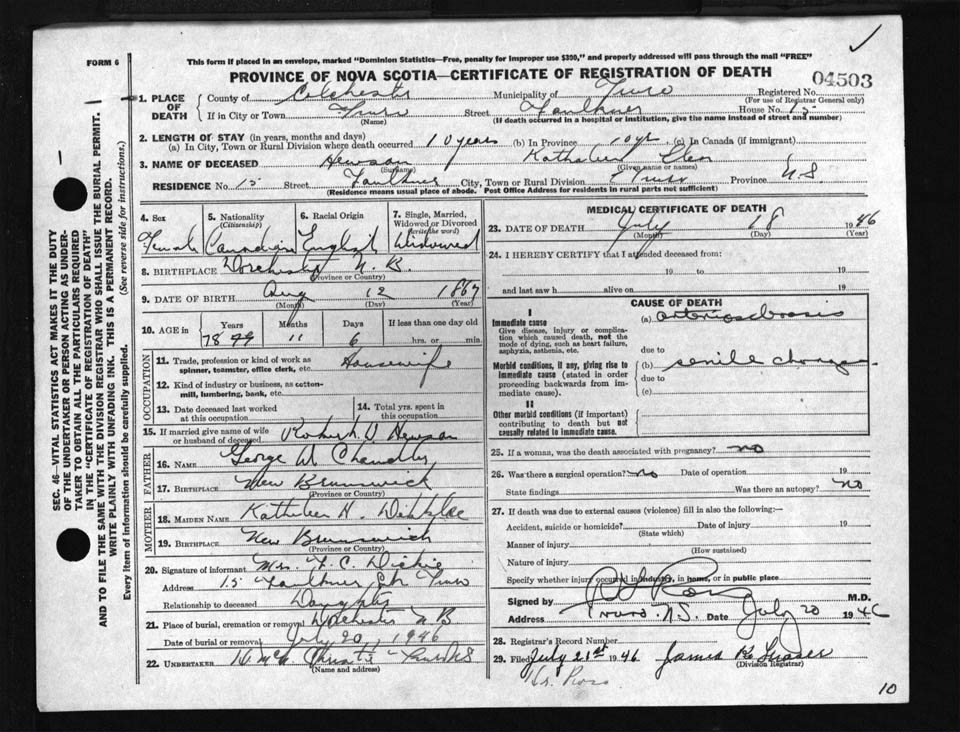 FORM 6
This form if placed in an envelope, marked "Dominion Statistics—Free, penalty for improper use $300," and properly addressed will pass through the mail "FREE"
PROVINCE OF NOVA SCOTIA—CERTIFICATE OF REGISTRATION OF DEATH
04503
1. PLACE OF DEATH
County of Colchester Municipality of Truro Registered No.
(For use of Registrar General only)
If in City or Town Truro Street Faulkner House No. 15
(Name) (If death occurred in a hospital or institution, give the name instead of street and number)
2. LENGTH OF STAY (in years, months and days)
(a) In City, Town or Rural Division where death occurred 10 years (b) In Province 10 yr. (c) In Canada (if immigrant)
3. NAME OF DECEASED Hewson Kathaleen Elen
(Surname) (Given name or names)
RESIDENCE No. 15 Street Faulkner City, Town or Rural Division Truro Province N.S.
(Residence means usual place of abode. Post Office Address for residents in rural parts not sufficient)
SEC. 46—VITAL STATISTICS ACT MAKES IT THE DUTY
OF THE UNDERTAKER OR PERSON ACTING AS UNDER-
TAKER TO OBTAIN ALL THE PARTICULARS REQUIRED
IN THE "CERTIFICATE OF REGISTRATION OF DEATH"
AND TO FILE THE SAME WITH THE DIVISION REGISTRAR WHO SHALL ISSUE THE BURIAL PERMIT.
WRITE PLAINLY WITH UNFADING INK. THIS IS A PERMANENT RECORD.
Every item of information should be carefully supplied. (See reverse side for instructions.)
4. Sex 5. Nationality (Citizenship) 6. Racial Origin 7. Single, Married, Widowed or Divorced (write the word)
Female Canadian English Widowed
8. BIRTHPLACE Dorchester N.B.
(Province or Country)
9. DATE OF BIRTH Aug 12 1867
(Month) (Day) (Year)
10. AGE in Years Months Days If less than one day old
78 79 11 6 hrs. or min.
OCCUPATION
11. Trade, profession or kind of work as spinner, teamster, office clerk, etc. Housewife
12. Kind of industry or business, as cotton-mill, lumbering, bank, etc.
13. Date deceased last worked at this occupation
14. Total yrs. spent in this occupation
15. If married give name of wife or husband of deceased Robert V Hewson
FATHER
16. NAME George W Chandler
17. BIRTHPLACE New Brunswick
(Province or Country)
MOTHER
18. MAIDEN NAME Kathleen H.
19. BIRTHPLACE New Brunswick
(Province or Country)
20. Signature of informant Mrs. F. C. Dickie
Address 15 Faulkner St. Truro
Relationship to deceased Daughter
21. Place of burial, cremation or removal Dorchester N B
Date of burial or removal July 20, 1946
22. UNDERTAKER Christie Truro NS
(Name and address)
MEDICAL CERTIFICATE OF DEATH
23. DATE OF DEATH July 18 1946
(Month) (Day) (Year)
24. I HEREBY CERTIFY that I attended deceased from:
19 to 19
and last saw h alive on 19
CAUSE OF DEATH
I
Immediate cause
Give disease, injury or complication which caused death, not the mode of dying, such as heart failure, asphyxia, asthenia, etc.
(a) arteriosclerosis
due to
Morbid conditions, if any, giving rise to immediate cause (stated in order proceeding backwards from immediate cause).
(b) senile changes
due to
(c)
II
Other morbid conditions (if important) contributing to death but not causally related to immediate cause.
25. If a woman, was the death associated with pregnancy? no
26. Was there a surgical operation? no Date of operation 19
State findings Was there an autopsy? no
27. If death was due to external causes (violence) fill in also the following:—
Accident, suicide or homicide? Date of injury 19
(State which)
Manner of injury
(How sustained)
Nature of injury
Specify whether injury occurred in industry, in home, or in public place
Signed by Ross M.D.
Address Truro N.S. Date July 20 1946
28. Registrar's Record Number
29. Filed July 21st 1946 James K Fraser
(Division Registrar)
Dr. Ross
10